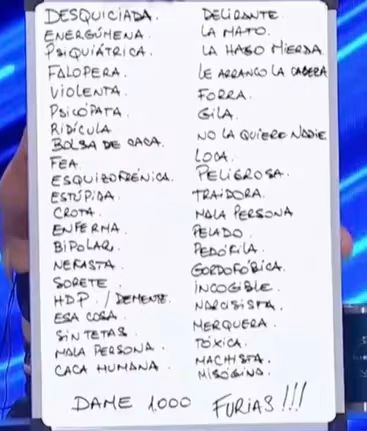 DESQUICIADA.
ENERGÚMENA.
PSIQUIÁTRICA.
FALOPERA.
VIOLENTA.
PSICÓPATA.
RIDÍCULA.
BOLSA DE CACA.
FEA.
ESQUIZOFRÉNICA.
ESTÚPIDA.
CROTA.
ENFERMA.
BIPOLAR.
NEFASTA.
SORETE.
HDP / DEMENTE.
ESA COSA.
SIN TETAS.
MALA PERSONA.
CACA HUMANA.
DELIRANTE.
LA MATO.
LA HAGO MIERDA
LE ARRANCO LA CABEZA
FORRA.
GILA.
NO LA QUIERE NADIE
LOCA.
PELIGROSA.
TRAIDORA.
MALA PERSONA
PELADO.
PEDÓFILA.
GORDOFÓBICA.
INCOGIBLE.
NARCISISTA.
MERQUERA.
TÓXICA.
MACHISTA.
MISÓGINO.
DAME 1.000 FURIAS!!!